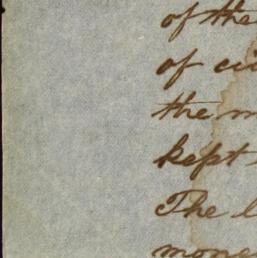 of the
of ci
the m
kept
The l
mone